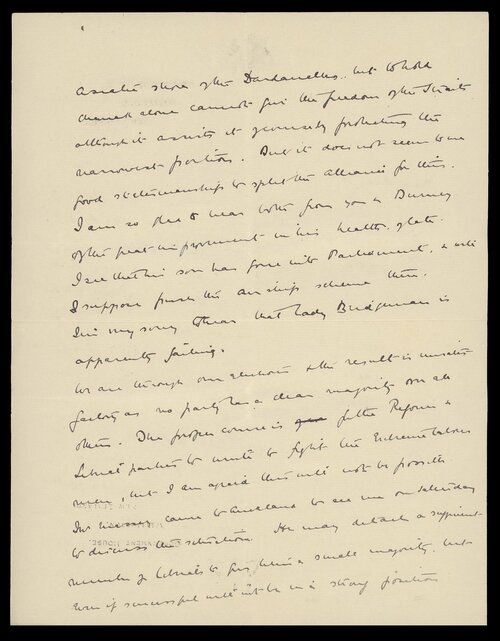 Asiatic shore of the Dardanelles. but to hold
Chanak alone cannot give the freedom of the Straits
although it assists it generously protecting the
narrowest portions. But it does not seem to me
good statesmanship to split the Alliance for this.
I am so glad to hear both from you &
of the great improvement in his health of late.
I see that his son has gone into Parliament, & will
I suppose push the airships scheme there.
I'm very sorry to hear that Lady Bridgeman is
apparently failing.
We are through our elections & the result is unsatis-
factory as no party has a clear majority over all
others. The proper course is for the Reform &
Liberal parties to unite to fight the Extreme Labour
men, but I am afraid this will not be possible.
came to Auckland to see me on Saturday
to discuss the situation. He may detach a sufficient
number of Liberals to give him a small majority, but
even if successful will not be in a strong position